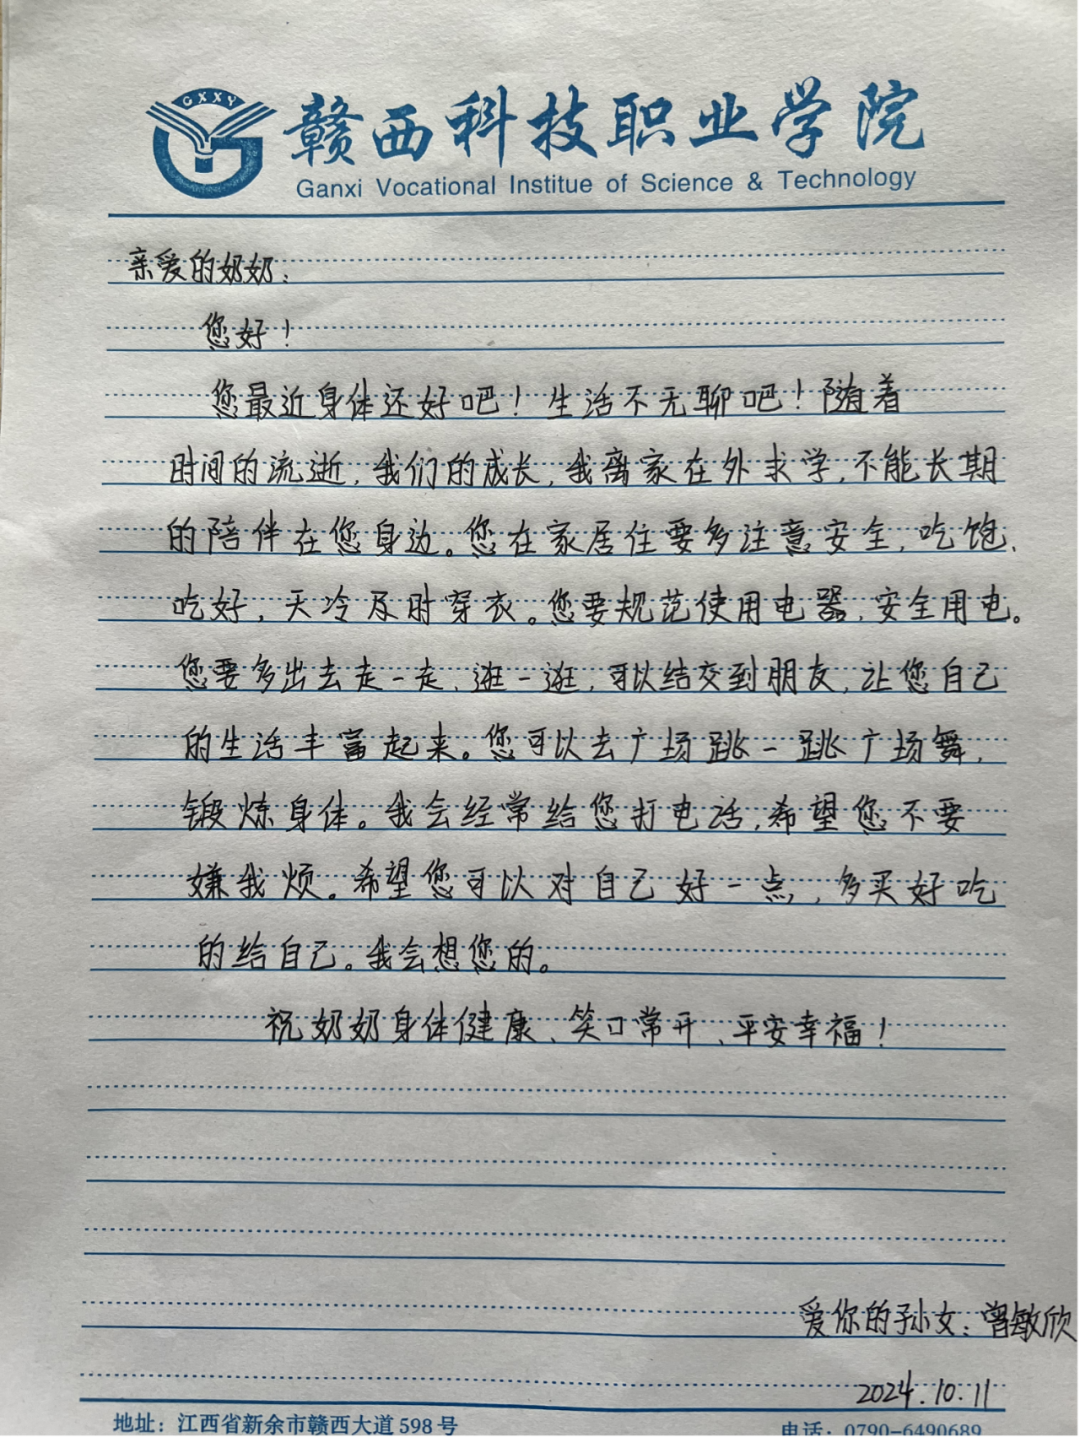 GXXY
赣西科技职业学院
Ganxi Vocational Institue of Science & Technology
亲爱的奶奶:
您好!
您最近身体还好吧!生活不无聊吧!随着
时间的流逝,我们的成长,我离家在外求学,不能长期
的陪伴在您身边。您在家居住要多注意安全,吃饱、
吃好,天冷及时穿衣。您要规范使用电器,安全用电。
您要多出去走一走、逛一逛,可以结交到朋友,让您自己
的生活丰富起来。您可以去广场跳一跳广场舞,
锻炼身体。我会经常给您打电话,希望您不要
嫌我烦。希望您可以对自己好一点,多买好吃
的给自己。我会想您的。
祝奶奶身体健康、笑口常开、平安幸福!
爱你的孙女:曾敏欣
2024.10.11
地址:江西省新余市赣西大道598号
电话:0790-6490689